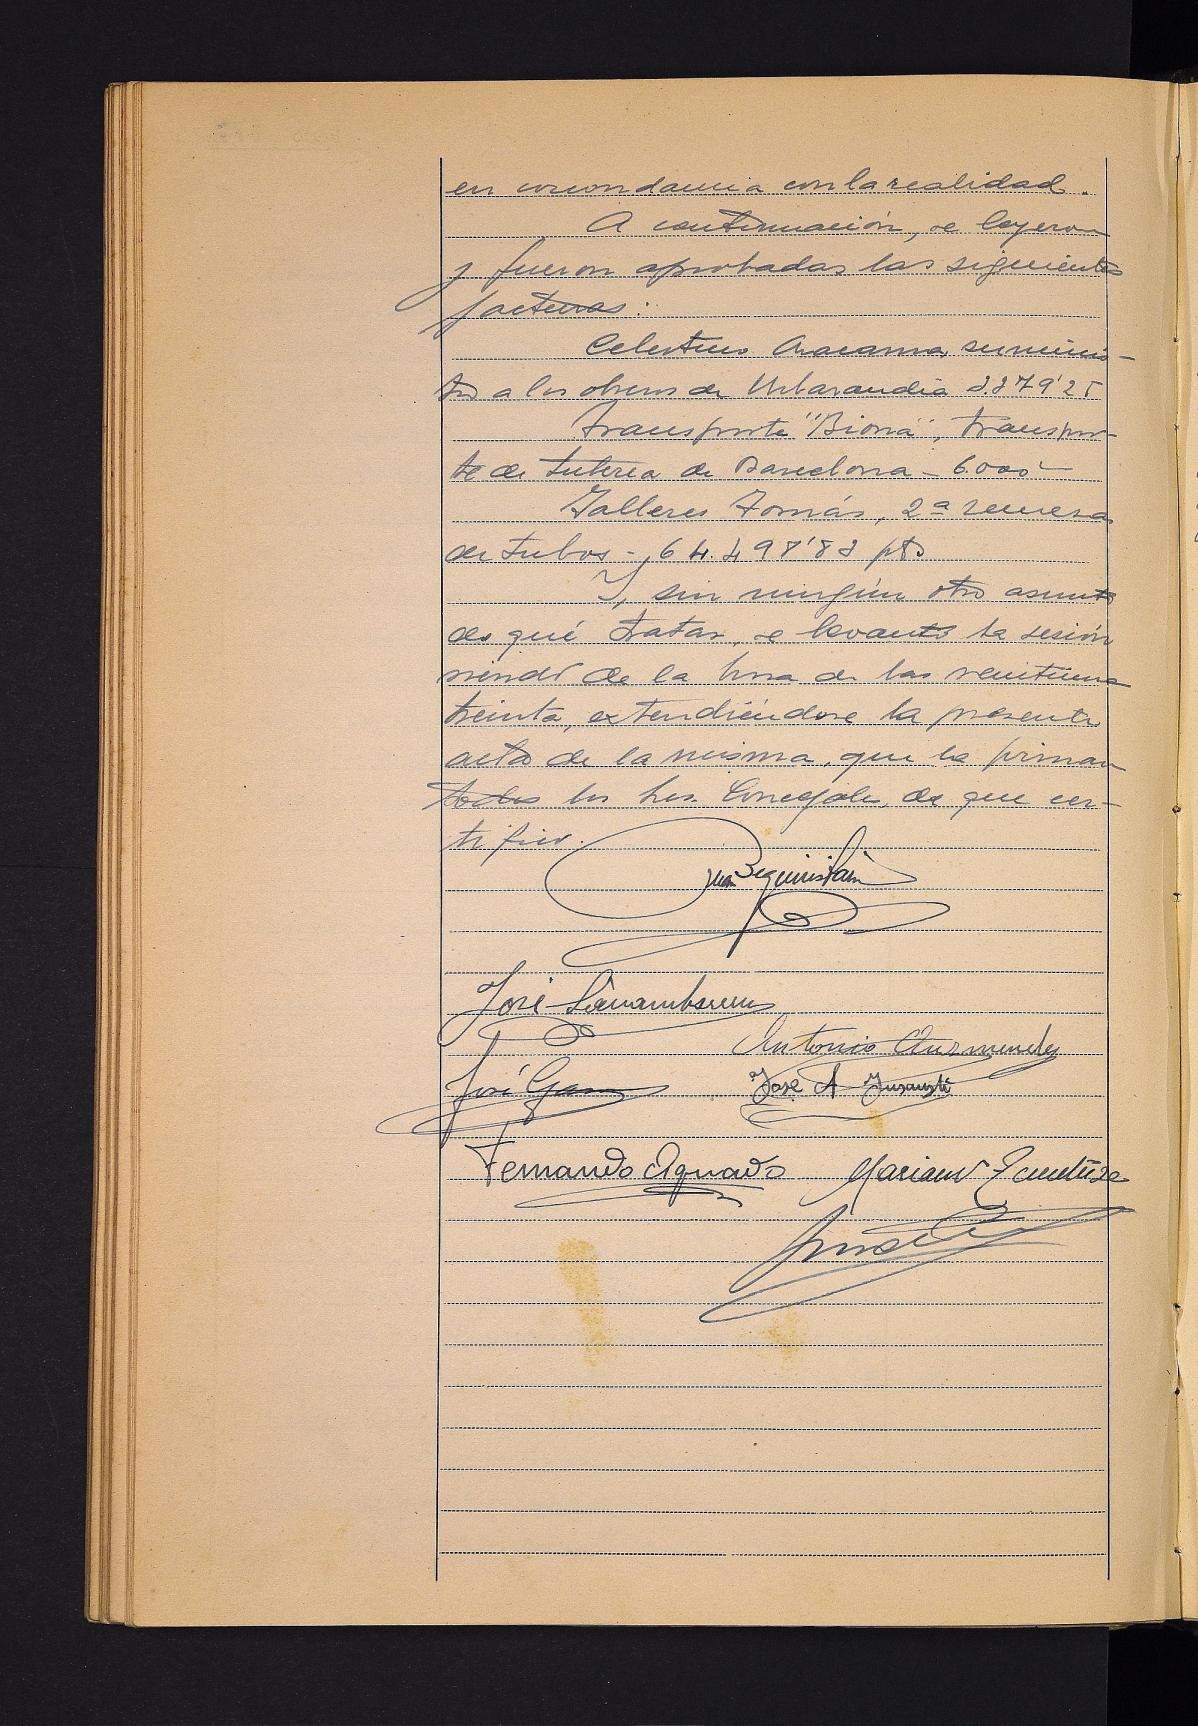 en concordancia con la realidad.
A continuación, se leyeron
y fueron aprobadas las siguientes
facturas:
Celestino Aracama suminis-
tro a las obras de Urbarandia
Transporte "Bioná", transpor-
te de tubería de Barcelona - 6.000'-
Talleres Tomás, 2ª remesa
de tubos - 64.498'83 pts
Y, sin ningún otro asunto
de qué tratar, se levantó la sesión
siendo de la hora de las veintiuna
treinta, extendiéndose la presente
acta de la misma, que la firman
todos los Sres. Concejales, de que cer-
tifico.
Juan Beguiristain
José
Antonio Aurmendi
José
José A
Fernando Aguado Mariano